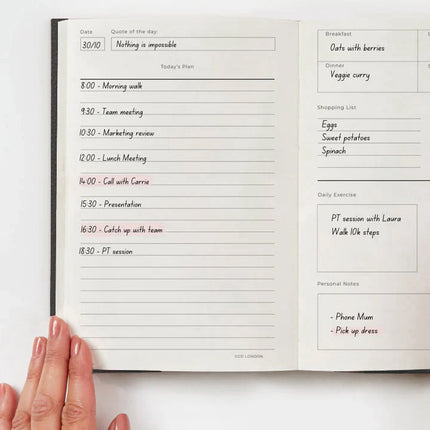 Date
Quote of the day:
30/10
Nothing is impossible
Today's Plan
8:00 - Morning walk
9:30 - Team meeting
10:30 - Marketing review
12:00 - Lunch Meeting
14:00 - Call with Carrie
15:30 - Presentation
16:30 - Catch up with team
18:30 - PT session
Breakfast
Oats with berries
Dinner
Veggie curry
Shopping List
Eggs
Sweet potatoes
Spinach
Daily Exercise
PT session with Laura
Walk 10k steps
Personal Notes
- Phone Mum
- Pick up dress